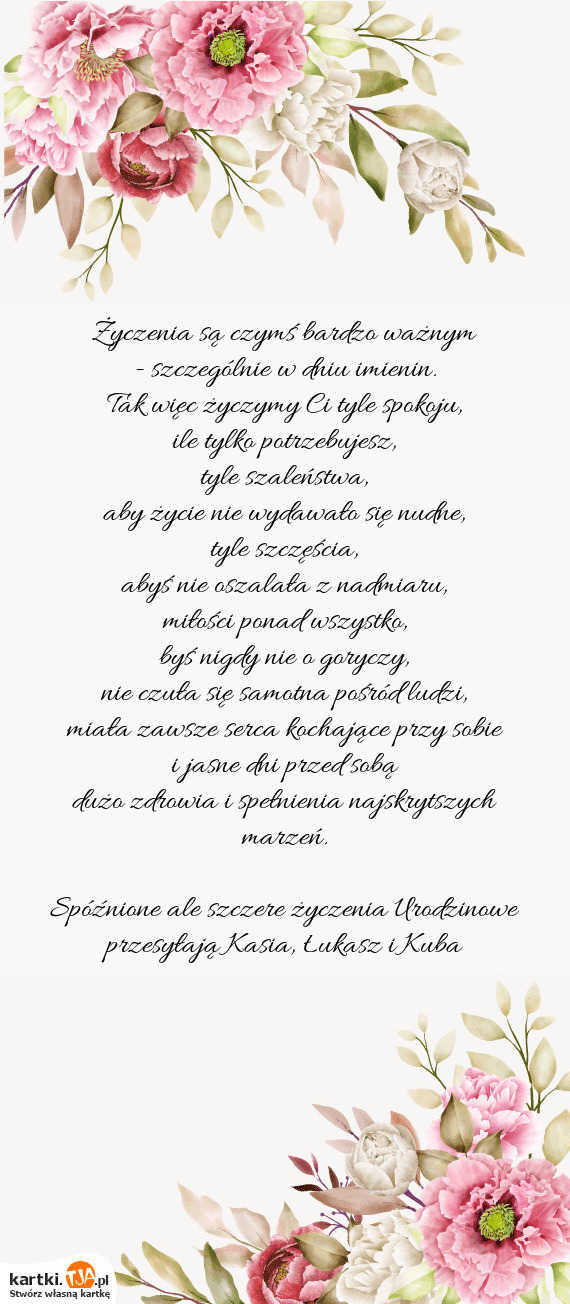 Życzenia są czymś bardzo ważnym
- szczególnie w dniu imienin.
Tak więc życzymy Ci tyle spokoju,
ile tylko potrzebujesz,
tyle szaleństwa,
aby życie nie wydawało się nudne,
tyle szczęścia,
abyś nie oszalała z nadmiaru,
miłości ponad wszystko,
byś nigdy nie o goryczy,
nie czuła się samotna pośród ludzi,
miała zawsze serca kochające przy sobie
i jasne dni przed sobą
dużo zdrowia i spełnienia najskrytszych
marzeń.
Spóźnione ale szczere życzenia Urodzinowe
przesyłają Kasia, Łukasz i Kuba
kartki.TJA.pl
Stwórz własną kartkę